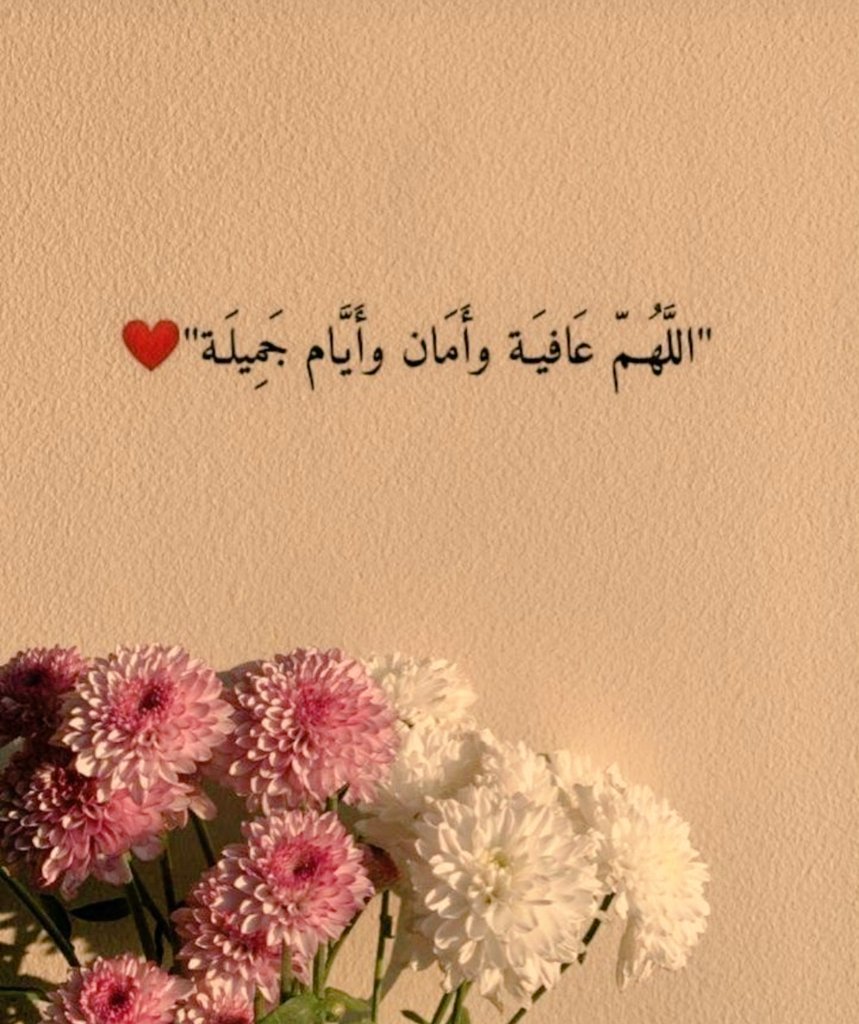 "اللَّهُمّ عَافيَة وأَمَان وأَيَّام جَمِيلَة"❤️